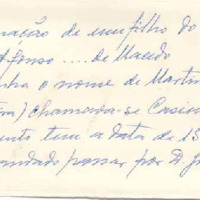 nação de um filho do
Afonso .... de Macedo
nha o nome de Martin
) chamava-se Casim
nto tem a data de 13
mandado passar por D. J